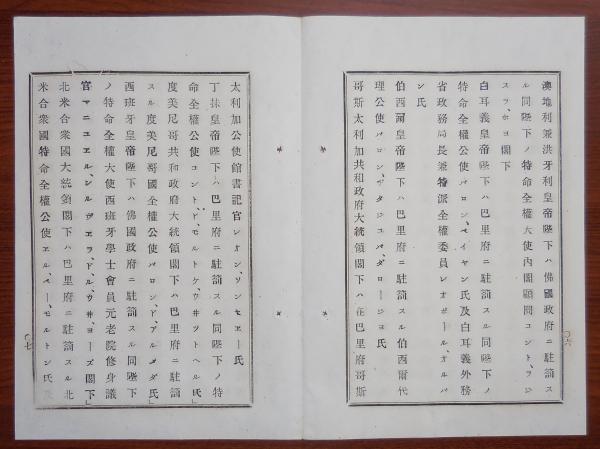 澳地利兼洪牙利皇帝陛下ハ佛國政府ニ駐箚ス
ル同陛下ノ特命全權大使內閣顧問コント、ヲジ
スヲ、ホヨ閣下
白耳義皇帝陛下ハ巴里府ニ駐箚スル同陛下ノ
特命全權公使バロン、ベイヤン氏及白耳義外務
省政務局長兼特派全權委員レオポール、オルバ
ン氏
伯西爾皇帝陛下ハ巴里府ニ駐箚スル伯西爾代
理公使バロン、ディタジュバ、ダロージョ氏
哥斯太利加共和政府大統領閣下ハ在巴里府哥斯
〇六
太利加公使館書記官レオン、ソンセェー氏
丁抹皇帝陛下ハ巴里府ニ駐箚スル同陛下ノ特
命全權公使コント、ド、モルトケ、ウ井ツトヘル氏」
度美尼哥共和政府大統領閣下ハ巴里府ニ駐箚
スル度美尼哥國全權公使バロン、ド、アルメダ氏」
西班牙皇帝陛下ハ佛國政府ニ駐箚スル同陛下
ノ特命全權大使西班牙學士會員元老院修身議
官マニュエル、シルヴェラ、ド、ル、ウ井、ヨーズ閣下」
北米合衆國大統領閣下ハ巴里府ニ駐箚スル北
米合衆國特命全權公使エル、ペー、モルトン氏及
〇七